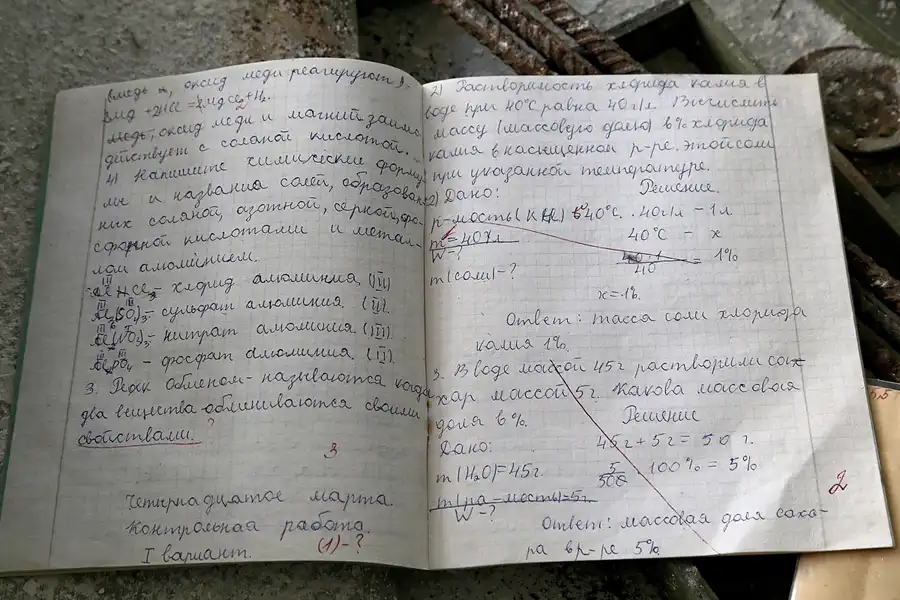 медь, оксид меди реагируют).
Mg + 2HCl = MgCl₂ + H₂.
медь, оксид меди и магний взаимо
действует с соляной кислотой.
4) Напишите химические форму
лы и названия солей, образован
ных соляной, азотной, серной, фо-
сфорной кислотами и метал-
лом алюминием.
хлорид алюминия (III)
Al₂(SO₄)₃ – сульфат алюминия (III).
Al(NO₃)₃ – нитрат алюминия (III)
AlPO₄ – фосфат алюминия. (III)
3. Реак обменом – называются когда
два вещества обмениваются своими
свойствами. ?
3
Четырнадцатое марта.
Контрольная работа.
I вариант. (1) – ?
2) Растворимость хлорида калия в
воде при 40°C равна 40 г/л. Вычислить
массу (массовую долю) в % хлорида
калия в насыщенном р-ре этой соли
при указанной температуре.
2) Дано: Решение.
р-мость (KCl) t°40°C. 40г/л – 1л
m = 40г/л 40°C – x
W – ? = 1%
m(соли) – ? 40
x = 1%.
Ответ: масса соли хлорида
калия 1%.
3. В воде массой 45г растворили сах
хар массой 5г. Какова массовая
доля в %. Решение
Дано: 45г + 5г = 50г.
m(H₂O) = 45г. 5/500 100% = 5%
m(ра – мость) = 5г.
W – ? Ответ: массовая доля саха-
ра в р-ре 5%.
2